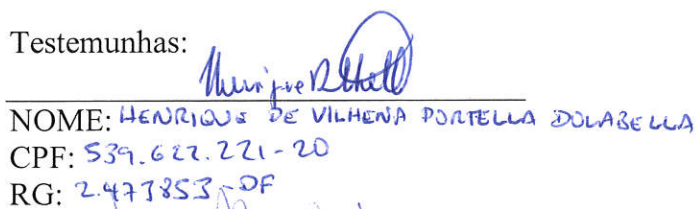 Testemunhas:
NOME: HENRIQUE DE VILHENA PORTELLA DOLABELLA
CPF: 539.622.221-20
RG: 2.473853-DF